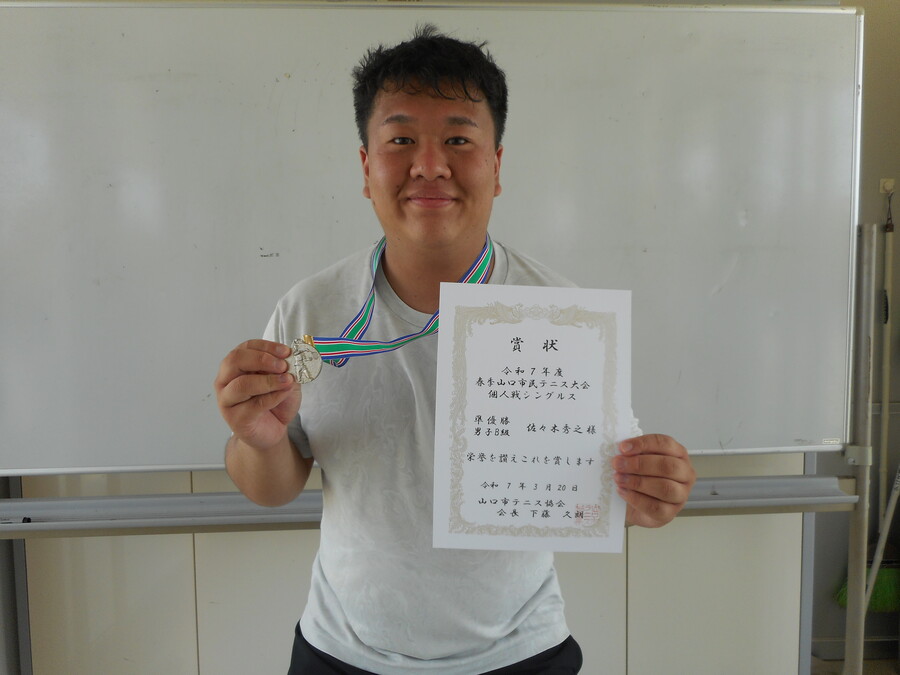 賞状
令和7年度
春季山口市民テニス大会
個人戦シングルス
準優勝
男子B級 佐々木秀之様
栄誉を讃えこれを賞します
令和7年3月20日
山口市テニス協会
会長 下藤 久朗